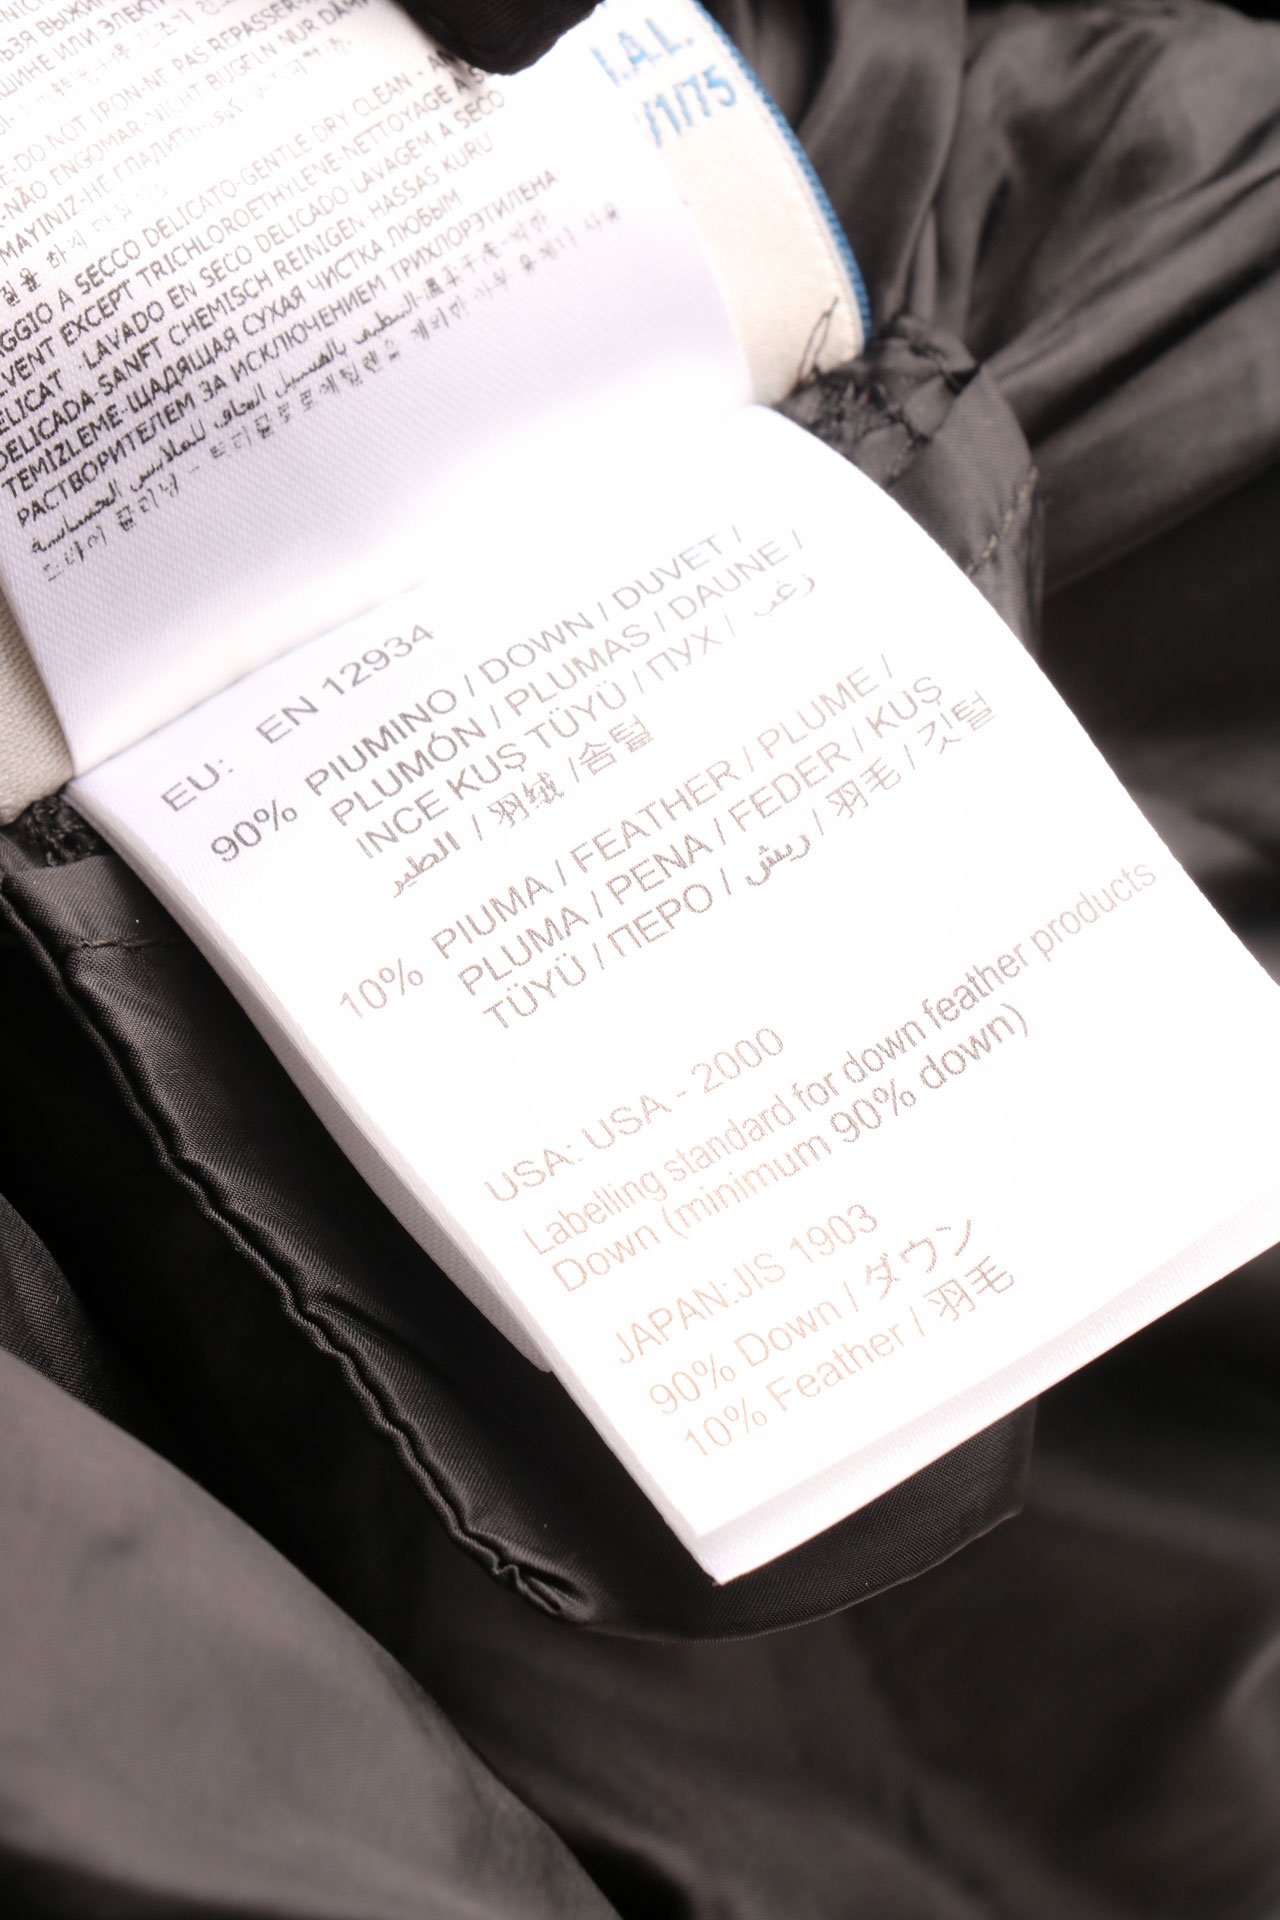 I.A.L.
/1/75
DO NOT IRON-NE PAS REPASSER
NÃO ENGOMAR-NICHT BÜGELN
MAYINIZ-НЕ ГЛАДИТЬ
GGIO A SECCO DELICATO-GENTLE DRY CLEAN -
LVENT EXCEPT TRICHLOROETHYLENE-NETTOYAGE A
ELICAT -LAVADO EN SECO DELICADO-LAVAGEM A SECO
DELICADA-SANFT CHEMISCH REINIGEN-HASSAS KURU
TEMİZLEME-ЩАДЯЩАЯ СУХАЯ ЧИСТКА ЛЮБЫМ
РАСТВОРИТЕЛЕМ ЗА ИСКЛЮЧЕНИЕМ ТРИХЛОРЭТИЛЕНА
EU: EN 12934
90% PIUMINO / DOWN / DUVET /
PLUMÓN / PLUMAS / DAUNE /
INCE KUŞ TÜYÜ / ПУХ / زغب
الطير / 羽绒 /솜털
10% PIUMA / FEATHER / PLUME /
PLUMA / PENA / FEDER / KUŞ
TÜYÜ / ПЕРО / ريش / 羽毛 / 깃털
USA: USA - 2000
Labelling standard for down feather products
Down (minimum 90% down)
JAPAN:JIS 1903
90% Down / ダウン
10% Feather / 羽毛